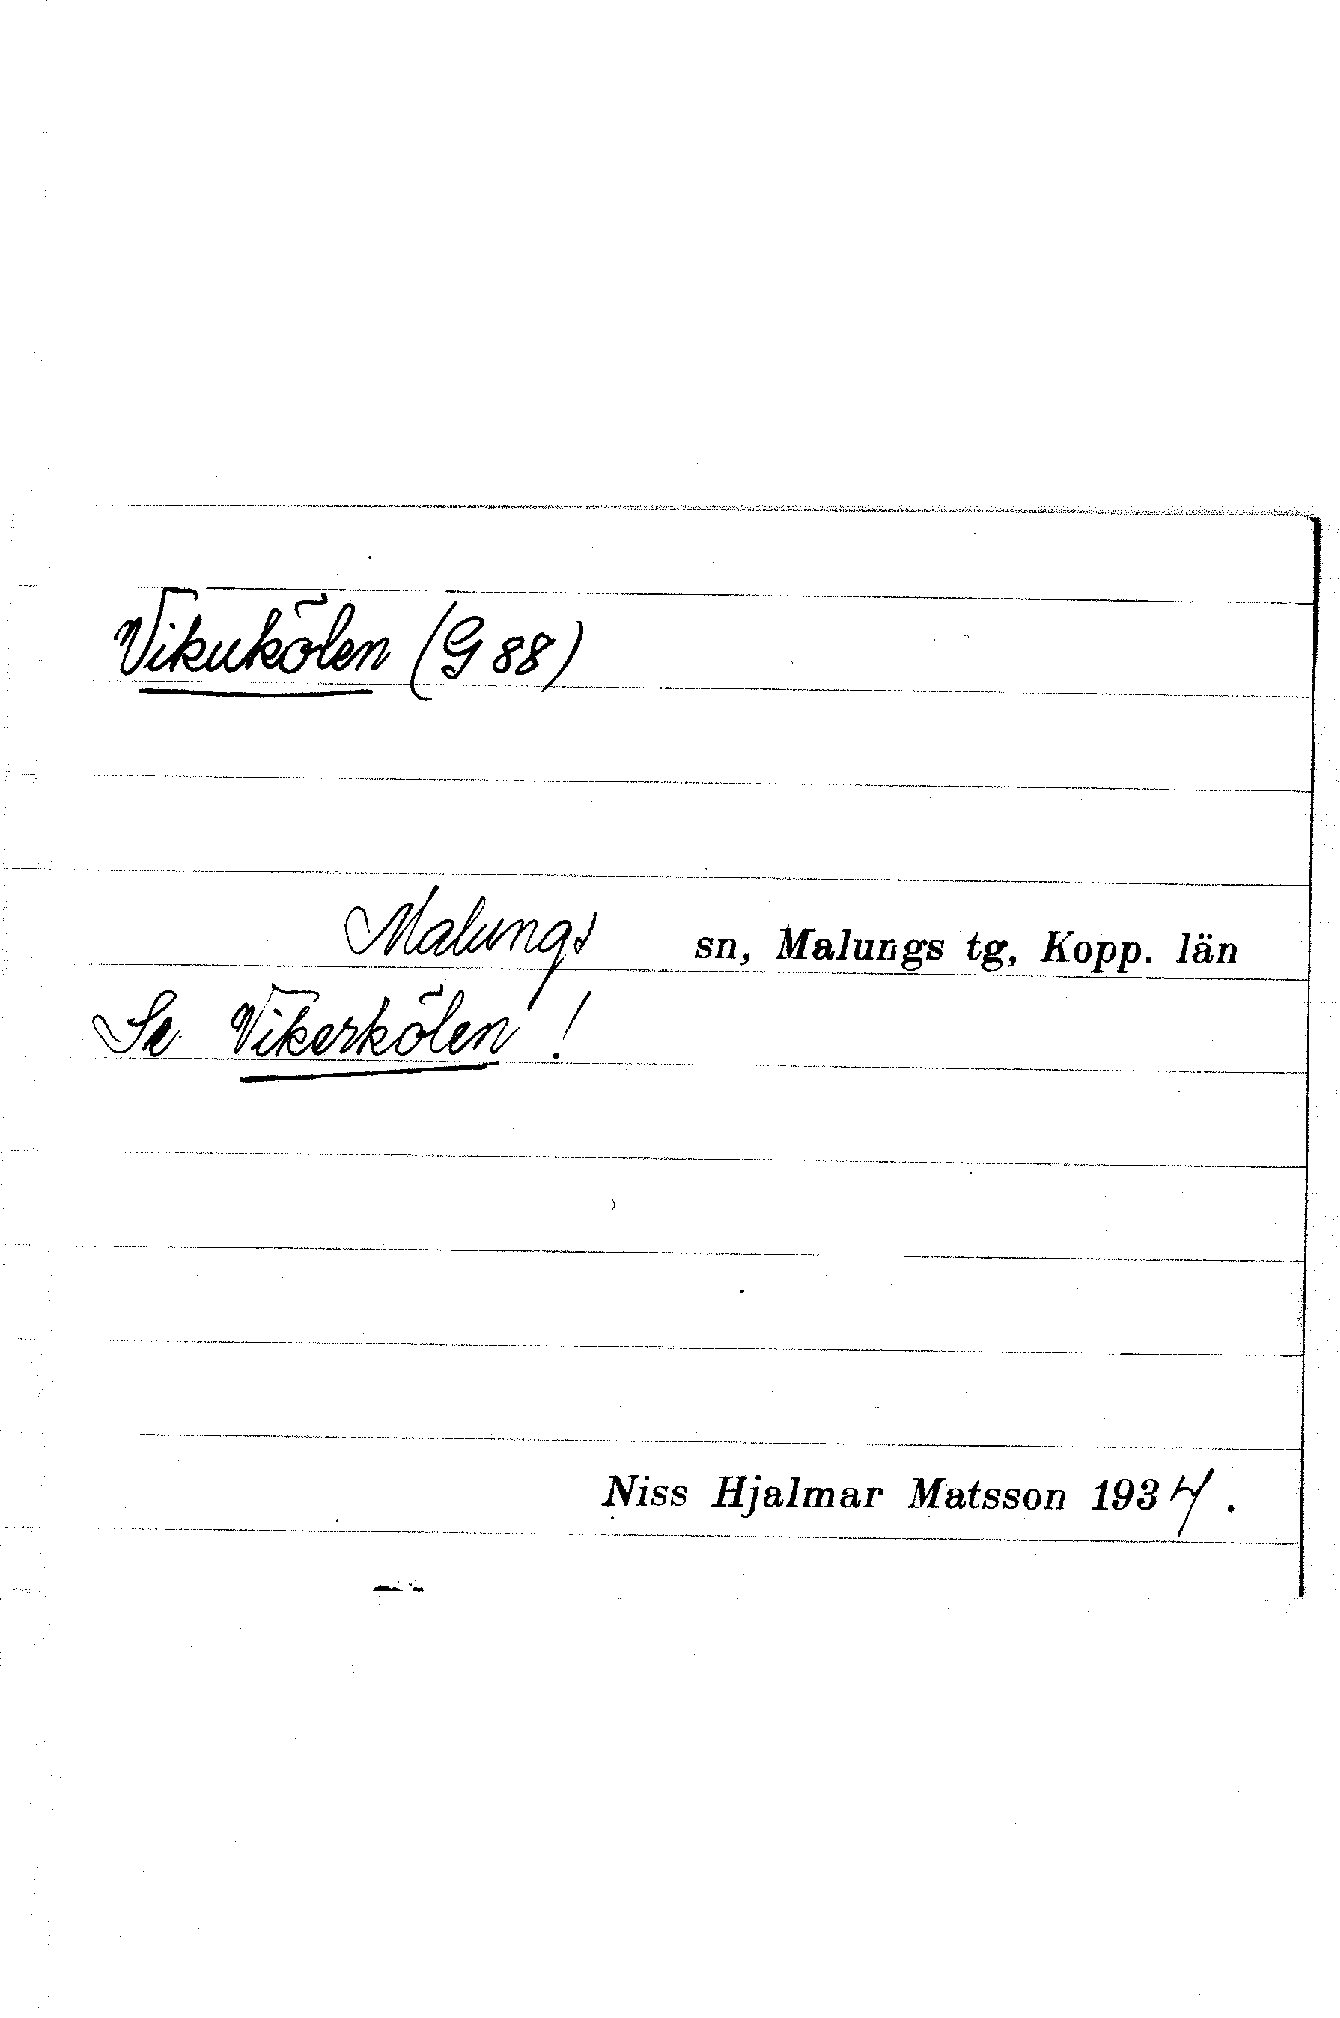 Vikukölen (G 88)
Malungs sn, Malungs tg, Kopp. län
Se Vikerkölen!
Niss Hjalmar Matsson 1934.